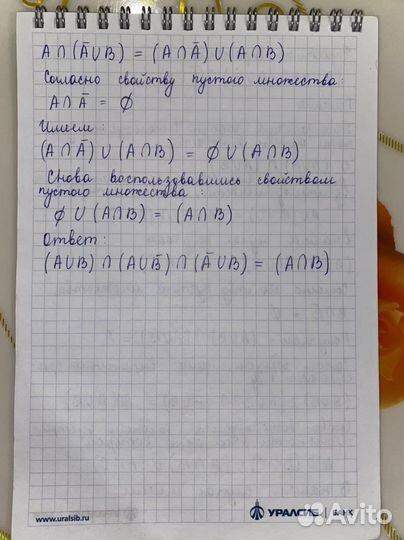 A ∩ (Ā ∪ B) = (A ∩ Ā) ∪ (A ∩ B)
Согласно свойству пустого множества:
A ∩ Ā = ∅
Имеем:
(A ∩ Ā) ∪ (A ∩ B) = ∅ ∪ (A ∩ B)
Снова воспользовавшись свойством
пустого множества:
∅ ∪ (A ∩ B) = (A ∩ B)
Ответ:
(A ∪ B) ∩ (A ∪ B̄) ∩ (Ā ∪ B) = (A ∩ B)
www.uralsib.ru
УРАЛСИБ | БАНК
Avito